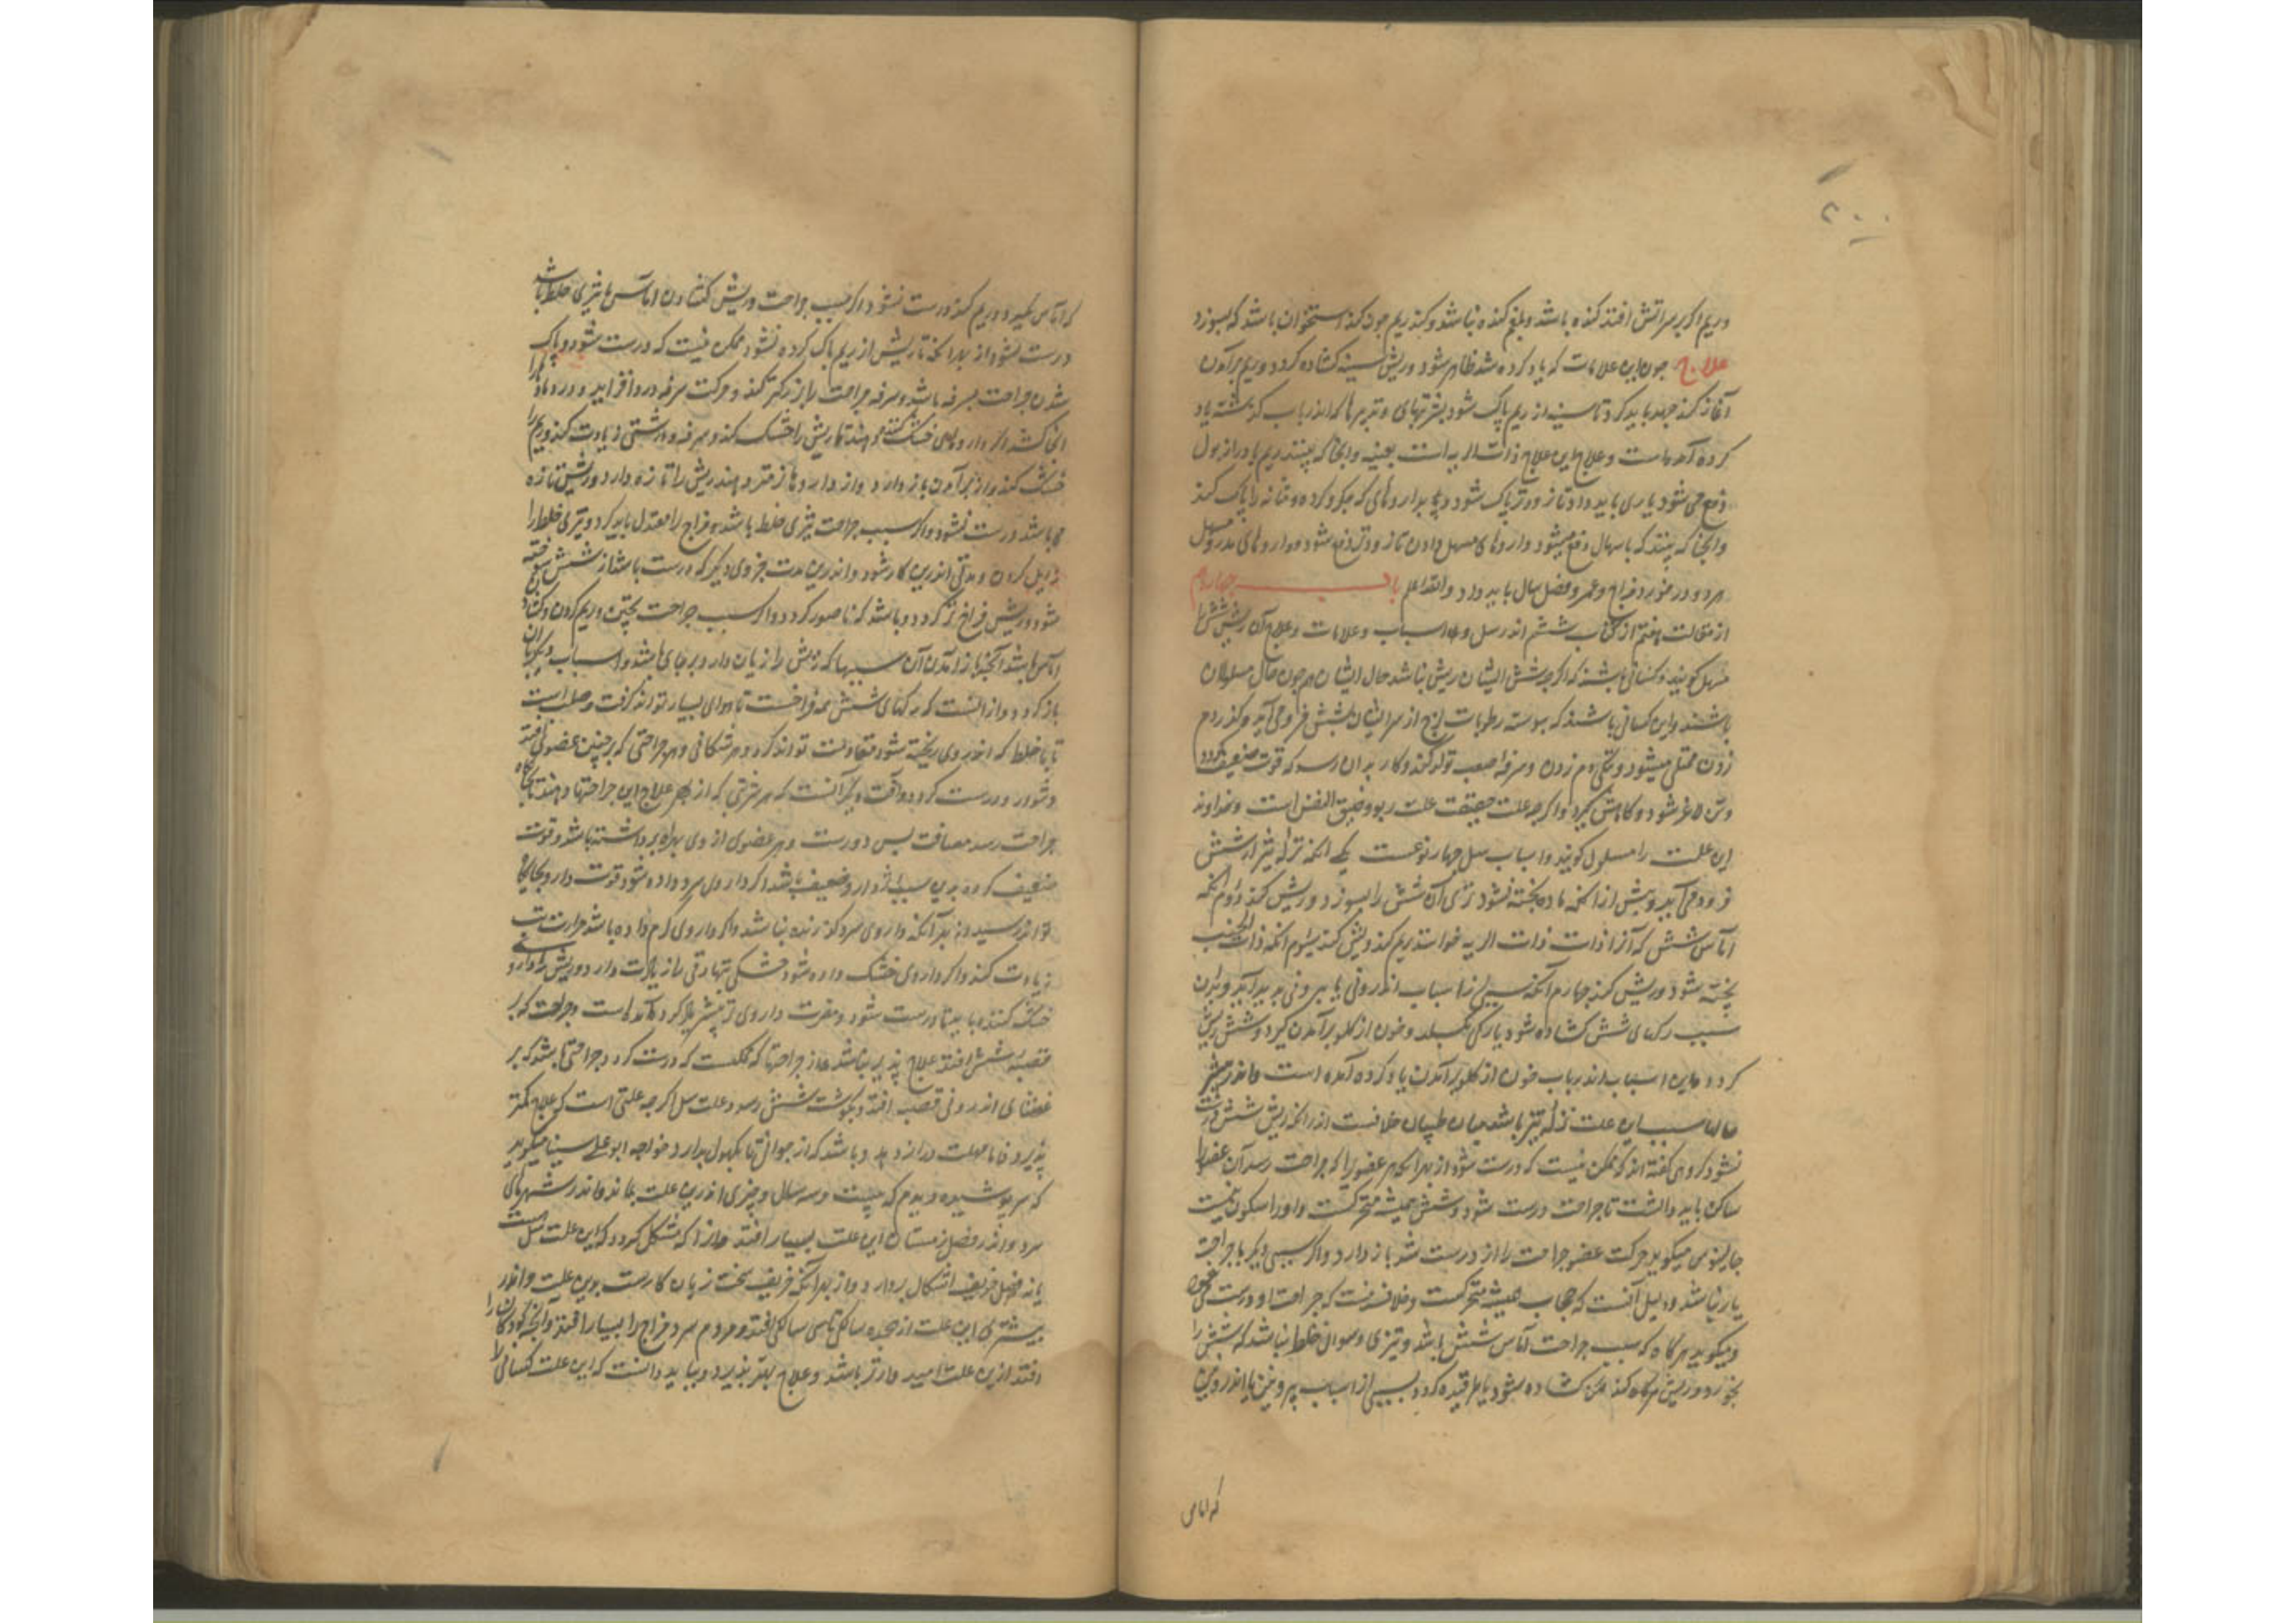 ۲۰۰
وریم اگر بر سر آتش افتد کنده باشد و بلغم کنده نباشد و کند ریم چون کند استخوان باشد که بسوزد
علاج چون این علامات که یاد کرده شد ظاهر شود و ریش سینه کشاده کردد و ریم برآمدن
آغاز کند جهد باید کرد تا سینه از ریم پاک شود بشربتهای و تدبیرها که اندر باب گذشته یاد
کرده آمده است و علاج این علاج ذات الریه است بعینه و انجا که بینند ریم با دراز بول
دفع می شود یاری باید داد تا زودتر پاک شود و بداروهای که جگر و کرده و مثانه را پاک کند
و انجا که بینند که باسهال دفع میشود داروهای مسهل دادن تا زودتر دفع شود و داروهای مدر و مسهل
هر دو در خورد مزاج و عمر و فصل سال باید داد والله اعلم باب چهارم
از مقالت هفتم از کتاب ششم اندر سل و اسباب و علامات و علاج آن ریش شش را
سل گویند و کسانی باشند که اگر چه شش ایشان ریش نباشد حال ایشان هم چون حال مسلولان
باشند و این کسانی باشند که پیوسته رطوبات لزج از سر ایشان بشش فرو می آید و گذر دم
زدن ممتلی میشود و تنگی دم زدن و سرفه صعب تولد کند و کار بدان رسد که قوت ضعیف گردد
و تن لاغر شود و کاهش گیرد و اگرچه علت حقیقت علت ربو و ضیق النفس است و خداوند
این علت را مسلول گویند و اسباب سل چهار نوعست یکی آنکه نزله تیز از شش
فرود می آید و پیش از آنکه ماده پخته شود تیزی آن شش را بسوزد و ریش کند دوم آنکه
آماس شش که آنرا ذات ذات الریه خوانند ریم کند و ریش کند سیوم آنکه ذات الجنب
پخته شود و ریش کند چهارم آنکه سببی از اسباب اندرونی یا بیرونی پدید آید و بدان
سبب رگهای شش کشاده شود یا رگی بگسلد و خون از گلو برآمدن گیرد و شش ریش
گردد و این اسباب اندر باب خون از گلو برآمدن یاد کرده آمده است و اندر بیشتر
حالها سبب این علت نزله تیز باشد میان طبیبان خلافست اندر آنکه ریش شش درست
شود گروهی گفته اند که ممکن نیست که درست شود از بهر آنکه هر عضوی را که جراحت رسد آن عضو را
ساکن باید داشت تا جراحت درست شود و شش همیشه متحرکست و او را سکون نیست
جالینوس میگوید حرکت عضو جراحت را از درست شدن باز دارد و اگر سببی دیگر با جراحت
یار نباشد و دلیل آنست که حجاب همیشه متحرکست و خلاف نیست که جراحت او درست می شود
و میگوید هر گاه که سبب جراحت آماس شش باشد و تیزی و سوزانی خلط نباشد که شش را
بخورد و ریش گرداند لکن کشاده شود یا طرقیده گردد بسببی از اسباب بیرونین یا اندرونین
که اماس
که آماس نگیرد و ریم کند درست شود و اگر سبب جراحت و ریش کشادن آماس یا تیزی خلط باشد
درست نشود از بهر آنکه تا ریش از ریم پاک کرده نشود ممکن نیست که درست شود و پاک
شدن جراحت بسرفه باشد و سرفه جراحت را بزرگتر کند و حرکت سرفه درد افزاید و درد ماده را
انجا کشد و اگر داروهای خشک کننده دهند تا ریش را خشک کند سرفه و درشتی زیادت کند و ریم را
خشک کند و از برآمدن باز دارد و از داروها تر دهند ریش را تازه دارد و ریش تازه
باشد درست نشود و اگر سبب جراحت تیزی خلط باشد مزاج را معتدل باید کرد و تیزی خلط را
زایل کردن و مدتی اندرین کار شود و اندرین مدت جزوی دیگر که درست باشد از شش سوخته
شود و ریش فراخ تر گردد و باشد که ناصور گردد و اگر سبب جراحت پختن و ریم کردن و کشادن
آماس باشد آنجا باز آمدن آن سببها که ریش را زیان دارد بر جای باشد و اسباب دیگر بدان
باز گردد و از آنست که رگهای شش همه فراخست تا هوای بسیار تواند گرفت و صلب است
تا با خلط که اندر وی ریخته شود مقاومت تواند کرد و هر شکافی و هر جراحتی که بر چنین عضوی افتد
دشوار درست گردد و آفت دیگر آنست که هر شربتی که از بهر علاج این جراحتها دهند تا بجایگاه
جراحت رسد مسافت بس دورست و هر عضوی از وی بهره برداشته باشد و قوت
ضعیف کرده بدین سبب اثر دارو ضعیف باشد اگر داروی سرد داده شود قوت دارو بجایگاه
تواند رسید از بهر آنکه داروی سرد گذرنده نباشد و اگر داروی گرم داده باشد حرارت تب
زیادت کند و اگر داروی خشک داده شود خشکی تب دق را زیادت دارد و ریش را دارو
خشک کننده باید تا درست شود و مضرت داروی تر پیشتر یاد کرده آمده است و جراحت که بر
قصبه شش افتد علاج پذیر نباشد و از جراحتها که ممکنست که درست گردد جراحتی باشد که بر
غشای اندرونی قصبه افتد و بگوشت شش نرسد و علت سل اگر چه علتی است که علاج کمتر
پذیرد فاما مهلت دراز دهد و باشد که از جوانی تا بکهول بدارد و خواجه ابو علی سینا میگوید
که سر پوشیده دیدم که بیست و سه سال و چیزی اندرین علت بماند و اندر شهرهای
سرد و اندر فصل زمستان این علت بسیار افتد و از آنکه مشکل گردد که این علت سل است
یا نه فصل خریف اشکال بردارد و از بهر آنکه خریف سخت زیان کارست بدین علت و اندر
بیشتری این علت از هجده سالگی تا سی سالگی افتد و مردم سرد مزاج را بسیار افتد و آنچه کودکان را
افتد ازین علت امیدوارتر باشد و علاج بهتر پذیرد و بباید دانست که این علت کسانی را